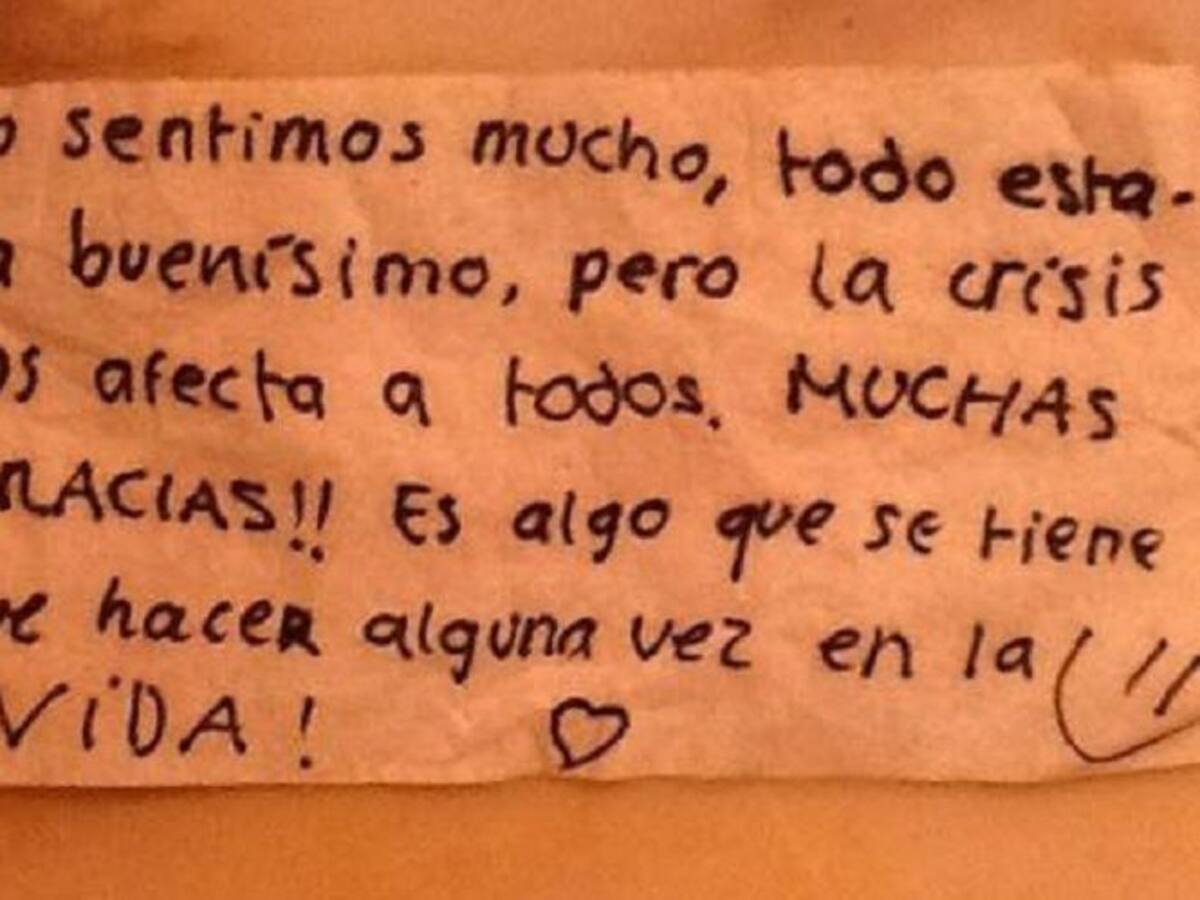 o sentimos mucho, todo esta-
a buenísimo, pero la crisis
os afecta a todos. MUCHAS
RACIAS!! Es algo que se tiene
ue hacer alguna vez en la
ViDA!